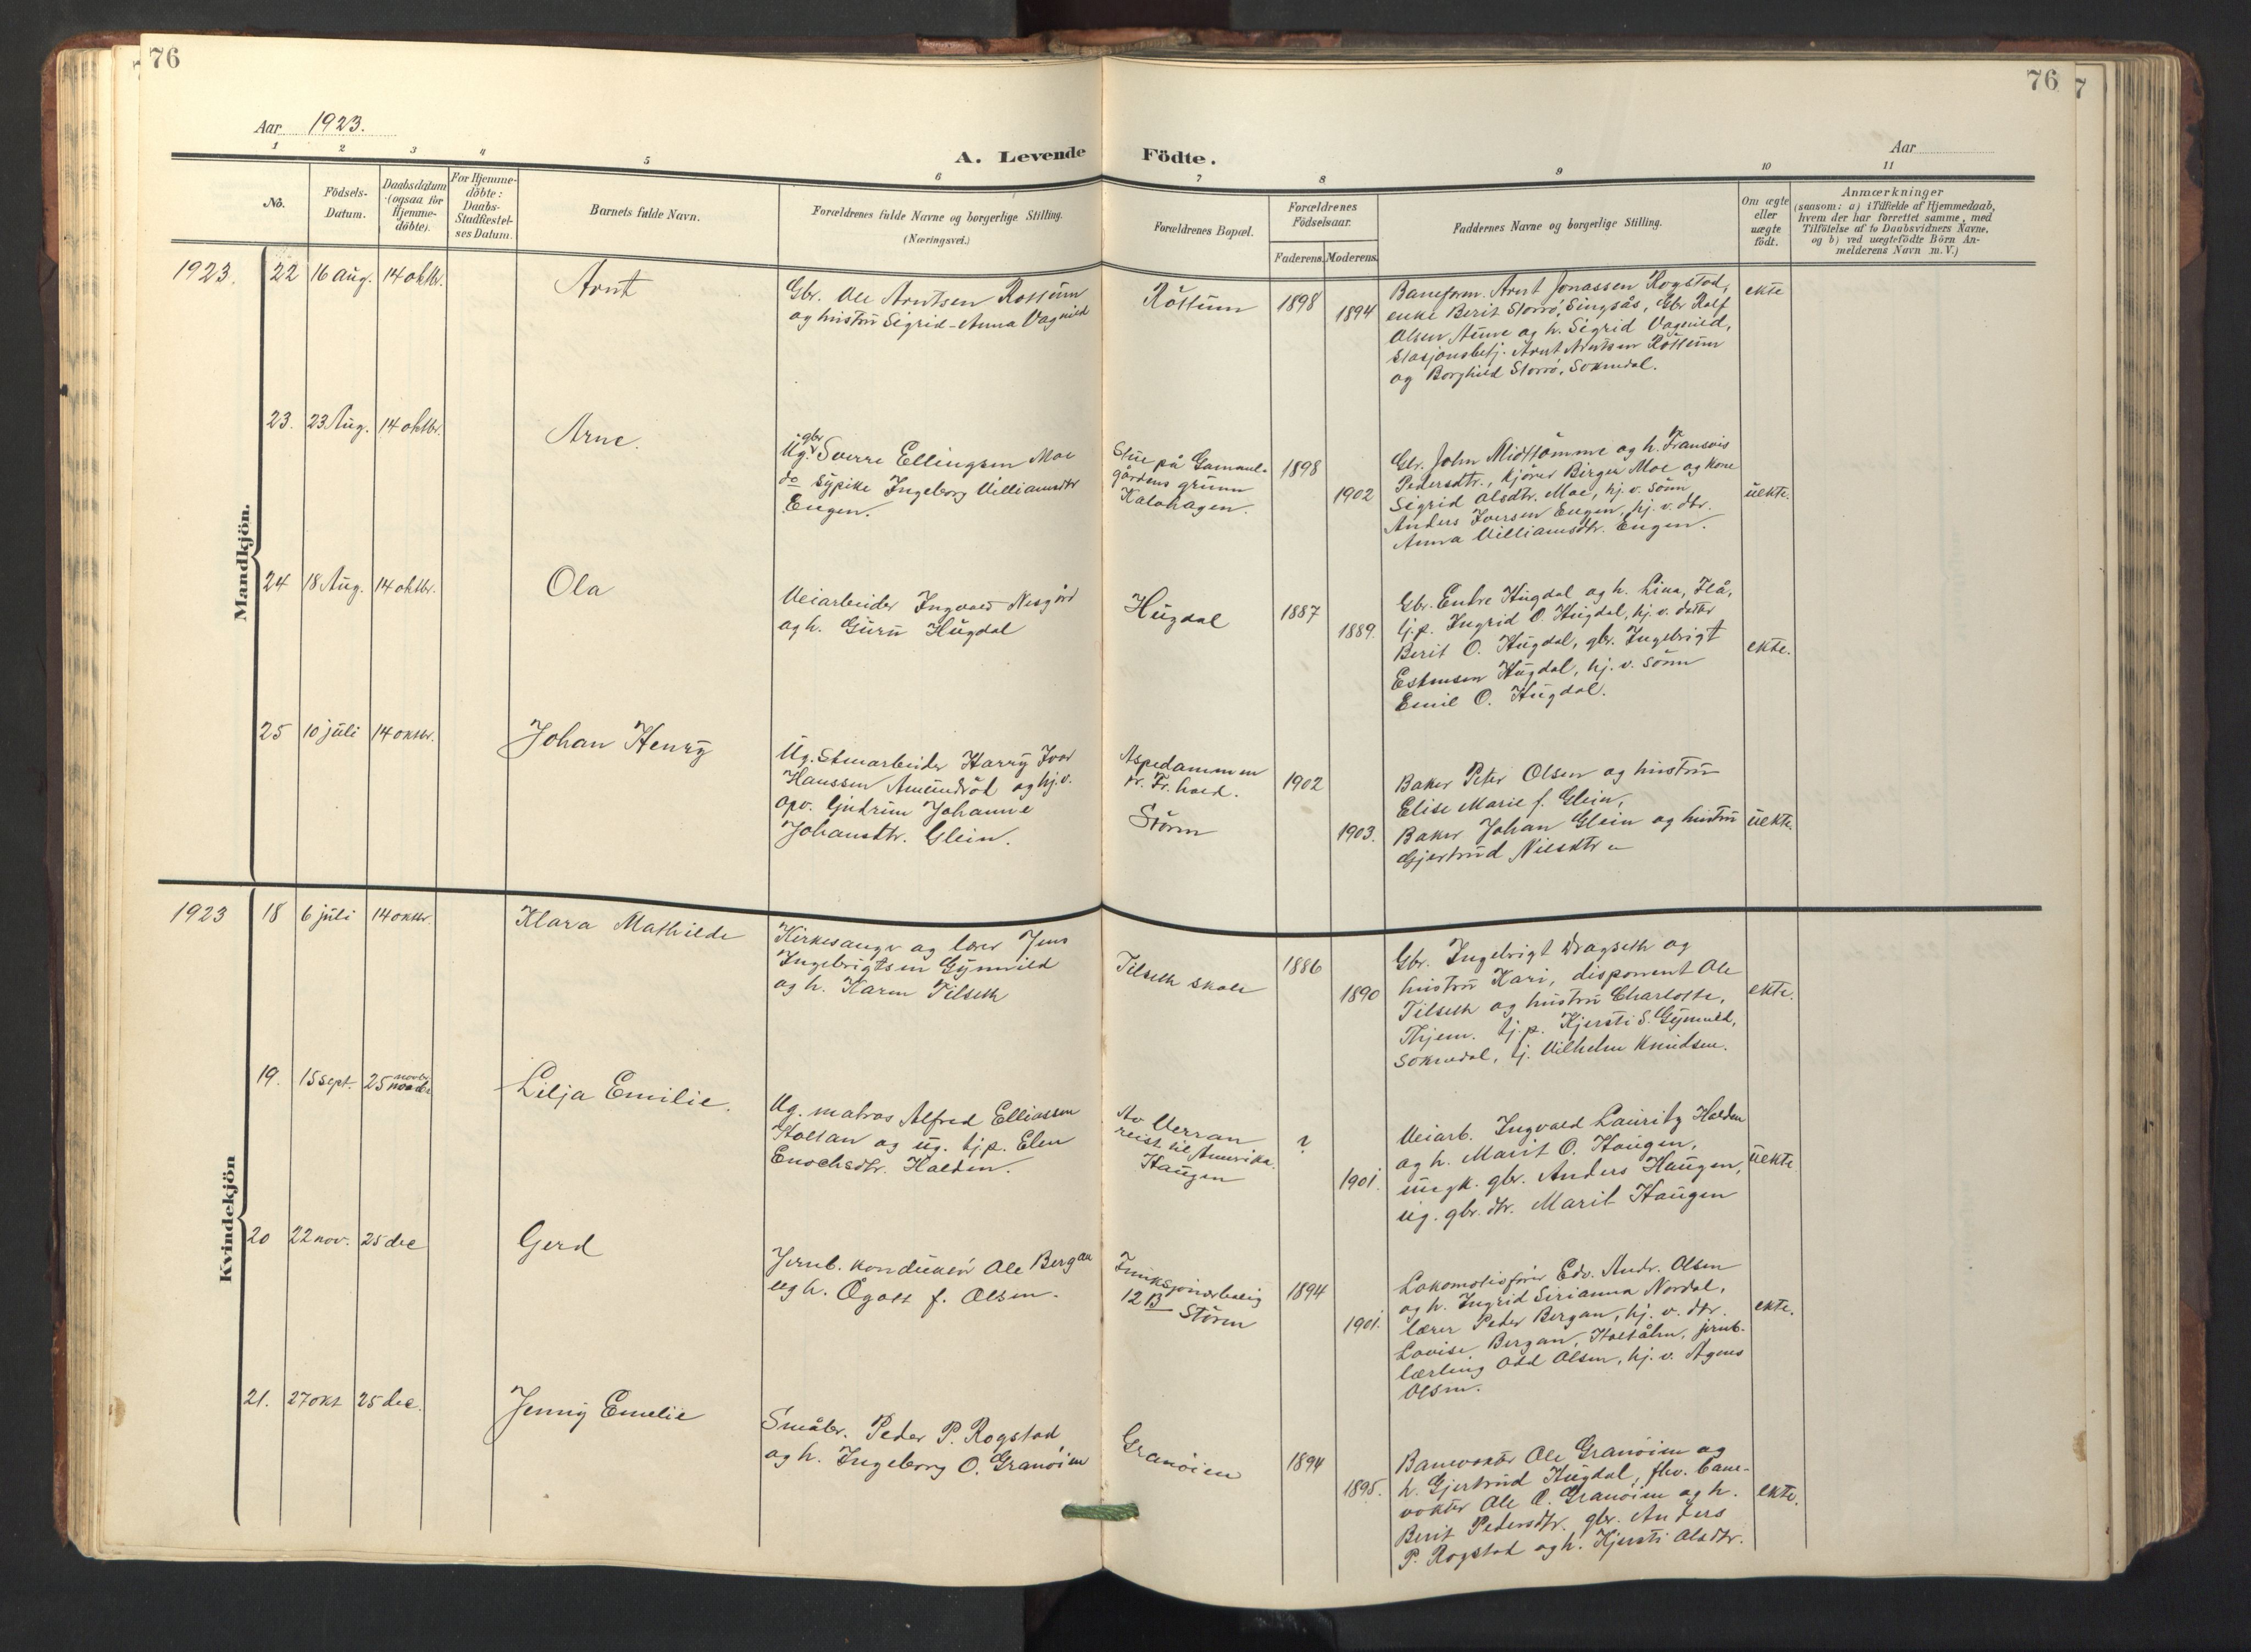 76
76
7
Aar 1923.
Aar
A. Levende Födte.
1 2 3 4 5 6 7 8 9 10 11
No.
Födsels-
Datum.
Daabsdatum
(ogsaa for
Hjemme-
döbte).
For Hjemme-
döbte:
Daabs-
Stadfæstel-
ses Datum.
Barnets fulde Navn.
Forældrenes fulde Navne og borgerlige Stilling.
(Næringsvei.)
Forældrenes Bopæl.
Forældrenes
Födselsaar.
Faderens. Moderens.
Faddernes Navne og borgerlige Stilling.
Om ægte
eller
uægte
födt.
Anmærkninger
(saasom: a) i Tilfælde af Hjemmedaab,
hvem der har forrettet samme, med
Tilföielse af to Daabsvidners Navne,
og b) ved uægtefödte Börn An-
melderens Navn m. V.)
Mandkjön.
1923. 22 16 aug. 14 oktbr.
Arnt
Gbr. Ole Arntsen Rostum
og hustru Sigrid Anna Vagnild
Röttum
1898
1894
Baneform. Arnt Jonassen Rogstad,
enke Berit Storrö, Singsås, Gbr. Rolf
Olsen Aune og h. Sigrid Vagnild,
Stasjonsbetj. Arnt Arntsen Röttum
og Borghild Storrö, Soknedal.
ekte
23. 23 Aug. 14 oktbr.
Arne.
gbr
Ug. Sverre Ellingsen Moe
do sypike Ingeborg Villiamsdtr
Engen.
Stue på Gammel-
gårdens grunn
Kalvhagen.
1898
1902
Gbr. John Midttömme og h. Fransvis
Pedersdtr., kjörer Birger Moe og kone
Sigrid Olsdtr. Moe, hj. v. sönn
Anders Iversen Engen, hj. v. dtr.
Anna Villiamsdtr. Engen.
uekte.
24 18 Aug. 14 oktbr.
Ola
Veiarbeider Ingvald Nesgård
og h. Guru Hugdal
Hugdal
1887
1889.
Gbr. Endre Hugdal og h. Lina, Flå,
tj.p. Ingrid O. Hugdal, hj. v. datter
Berit O. Hugdal, gbr. Ingebrigt
Estensen Hugdal, hj. v. sönn
Emil O. Hugdal.
ekte.
25 10 juli 14 oktbr.
Johan Henry
Ug. Stenarbeider Harry Ivar
Hanssen Amundröd og hj. v.
opv. Gudrun Johanne
Johansdtr. Glein.
Aspedammen
pr. Fr.hald.
Stören
1902
1903.
Baker Peter Olsen og hustru
Elise Marie f. Glein,
Baker Johan Glein og hustru
Gjertrud Nilsdtr "
uekte.
Kvindekjön
1923 18 6 juli 14 oktbr.
Klara Mathilde
Kirkesanger og lærer Jens
Ingebrigtsen Gynnild
og h. Karen Tilseth
Tilseth skole
1886
1890
Gbr. Ingebrigt Dragseth og
hustru Kari, disponent Ole
Tilseth og hustru Charlotte,
Thjem. tj.p. Kjersti S. Gynnild,
Soknedal, tj. Vilhelm Knudsen.
ekte.
19. 15 sept. 25 novbr.
Lilja Emilie.
Ug. matros Alfred Elliassen
Holtan og ug. tj.p. Elen
Enochsdtr. Halden.
Av Verran
reist til Amerika.
Haugen
?
1901.
Veiarb. Ingvald Lauritz Halden
og h. Marit O. Haugen,
ungk. gbr. Anders Haugen,
ug. gbr. dtr. Marit Haugen
uekte.
20 22 nov. 25 dec
Gerd
Jernb. konduktör Ole Bergan
og h. Ågott f. Olsen.
Funksjonærbolig
12 B Stören
1894
1901.
Lokomotivförer Edv. Andr. Olsen
og h. Ingrid Sirianna Nordal,
lærer Peder Bergan, hj. v. dtr.
Lovise Bergan, Holtålen, jernb.
lærling Odd Olsen, hj. v. Agnes
Olsen.
ekte.
21. 27 okt 25 dec.
Jenny Emelie
Småbr. Peder P. Rogstad
og h. Ingeborg O. Granöien
Granöien
1894
1895.
Banevokter Ole Granöien og
h. Gjertrud Hugdal, fhv. bane-
vokter Ole O. Granöien og h.
Berit Pedersdtr. gbr. Anders
P. Rogstad og h. Kjersti Olsdtr.
ekte.